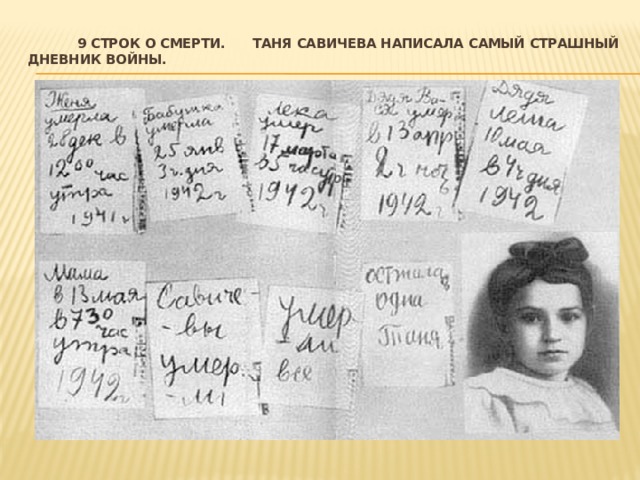 9 СТРОК О СМЕРТИ. ТАНЯ САВИЧЕВА НАПИСАЛА САМЫЙ СТРАШНЫЙ
ДНЕВНИК ВОЙНЫ.
Женя
умерла
28 дек в
12 00 час
утра
1941 г
Бабушка
умерла
25 янв
3 ч. дня
1942 г
Лека
умер
17 марта
в 5 час утр
1942 г
Дядя Ва-
ся умер
в 13 апр
2 ч ноч
в
1942 г
Дядя
Леша
10 мая
в 4 ч дня
1942
Мама
в 13 мая
в 7 30
час
утра
1942 г
Савиче-
-вы
умер-
-ли
умер
-ли
все
осталась
одна
Таня